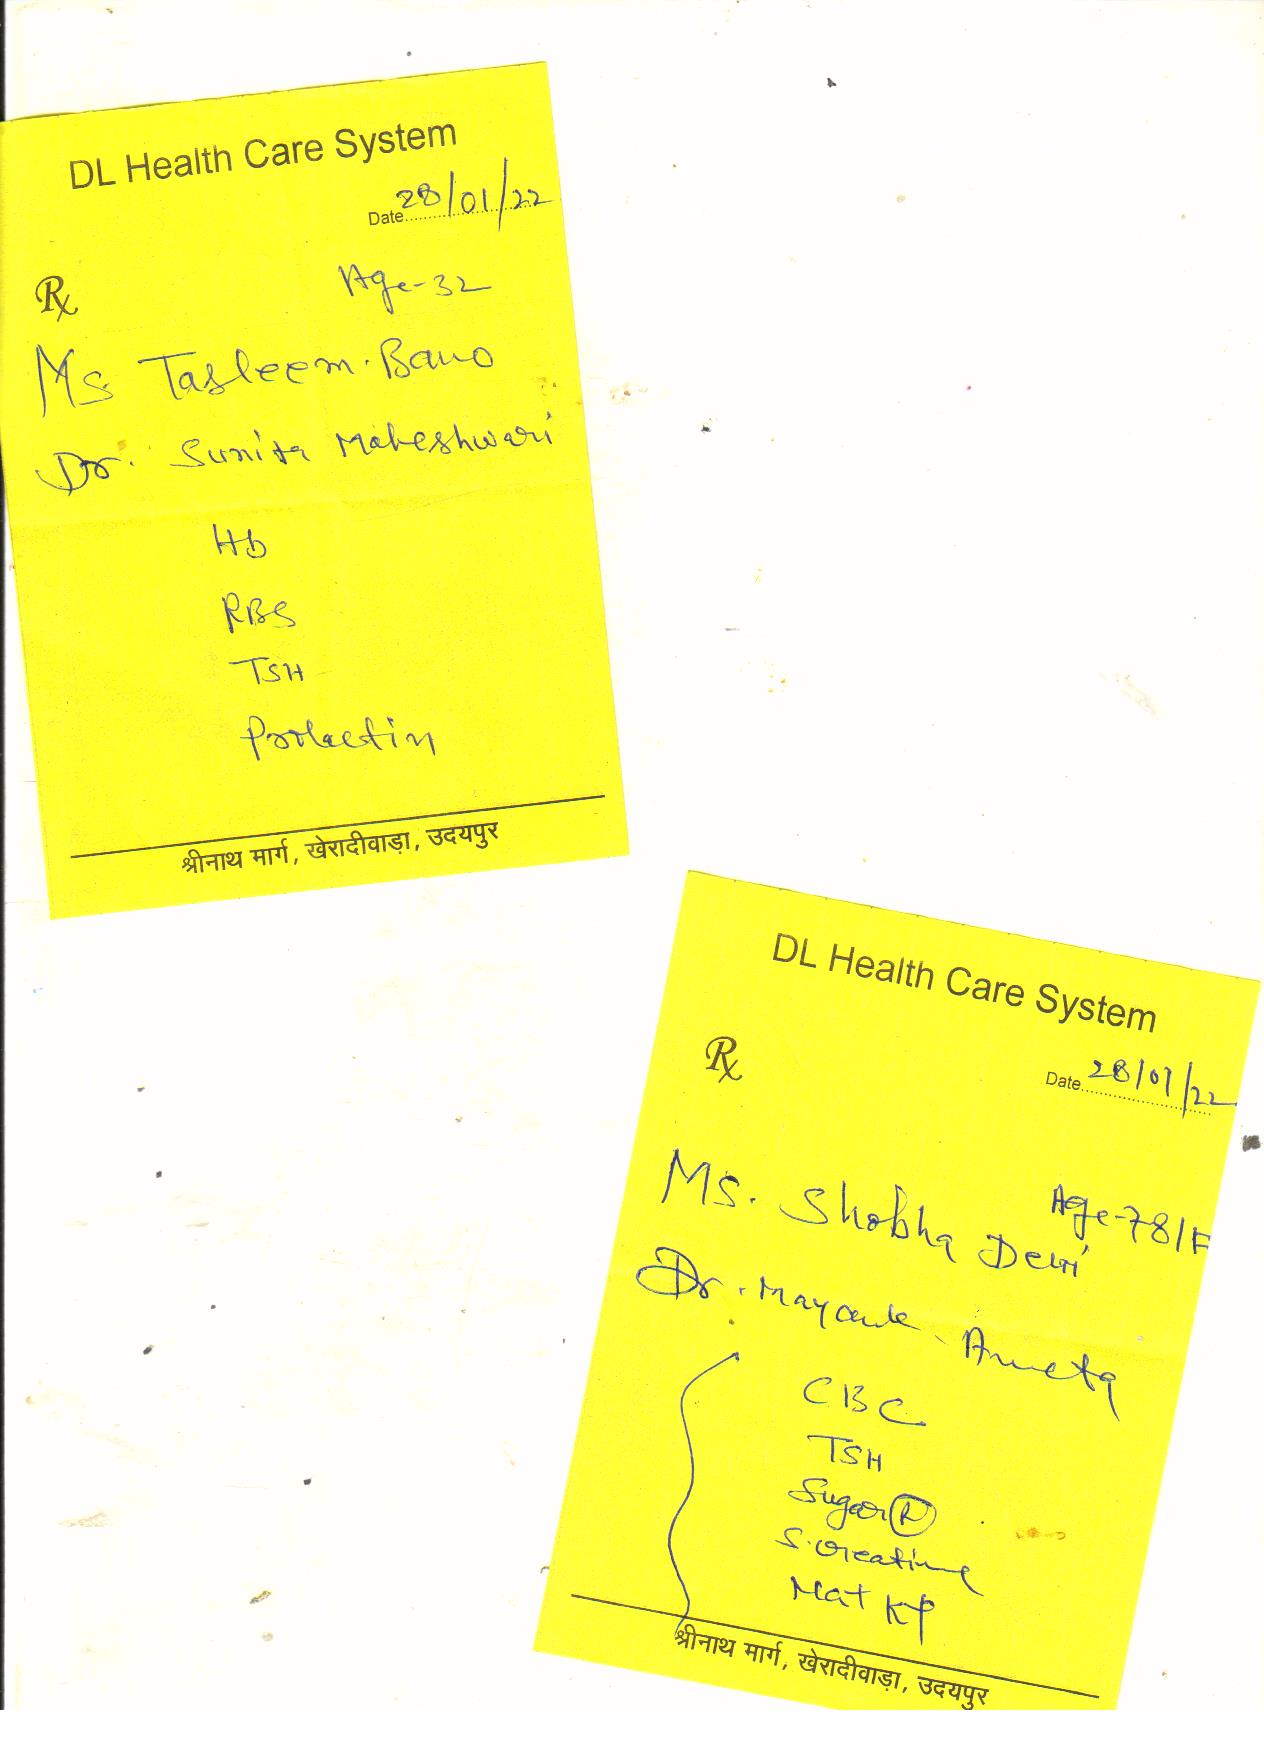 DL Health Care System
Date 28/01/22
Rx Age-32
Ms Tasleem. Bano
Dr. Sunita Maheshwari
Hb
RBS
TSH
Prolactin
श्रीनाथ मार्ग, खेरादीवाड़ा, उदयपुर
DL Health Care System
Rx Date 28/01/22
Age-78/F
Ms. Shobha Devi
Dr. Mayank
CBC
TSH
Sugar (R)
S. Creatine
श्रीनाथ मार्ग, खेरादीवाड़ा, उदयपुर